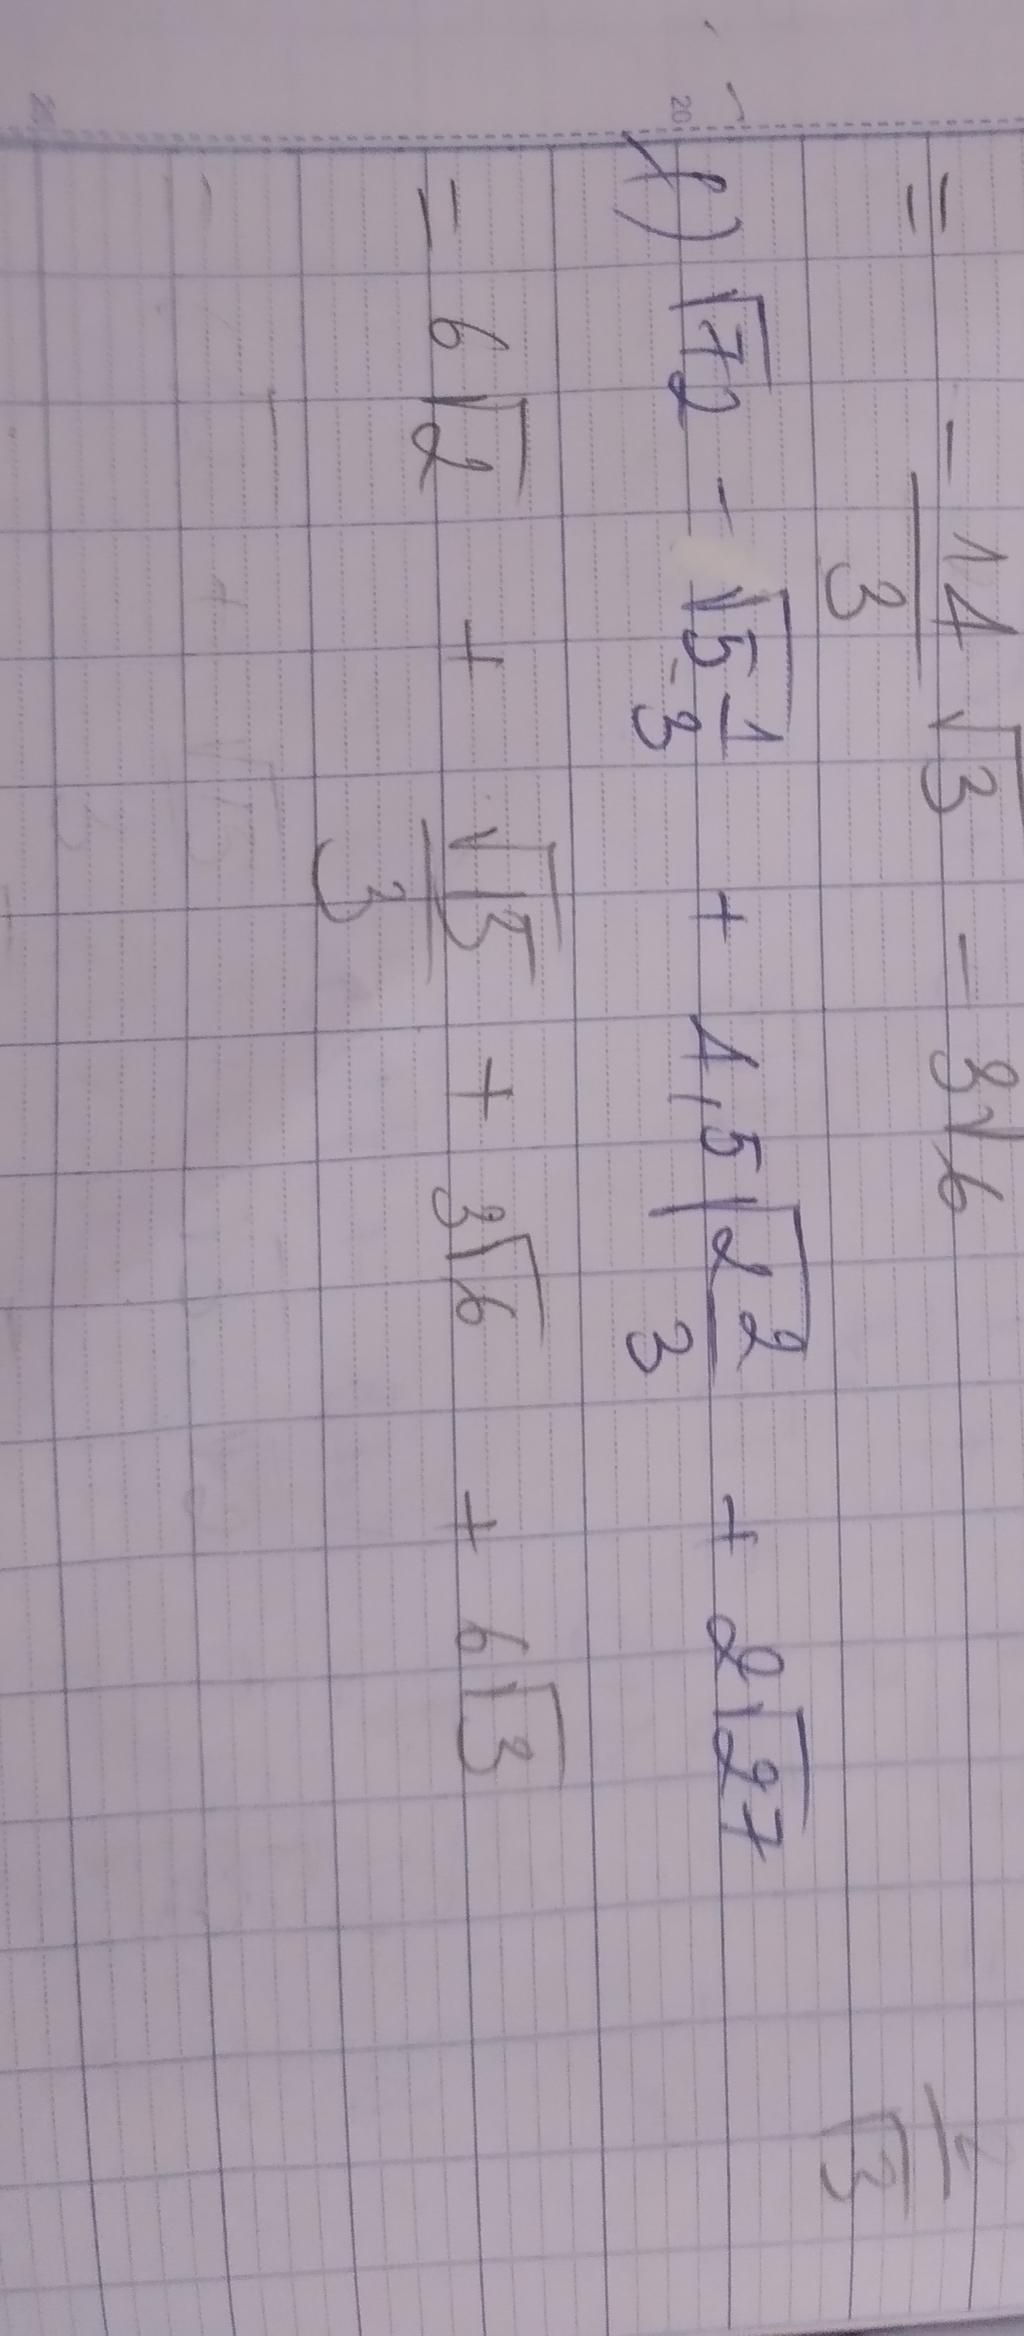 = - 14/3 √3 - 3√6
f) √72 - √(5 1/3) + 4,5√(2 2/3) + 2√27
= 6√2 + √15/3 + 3√6 + 6√3